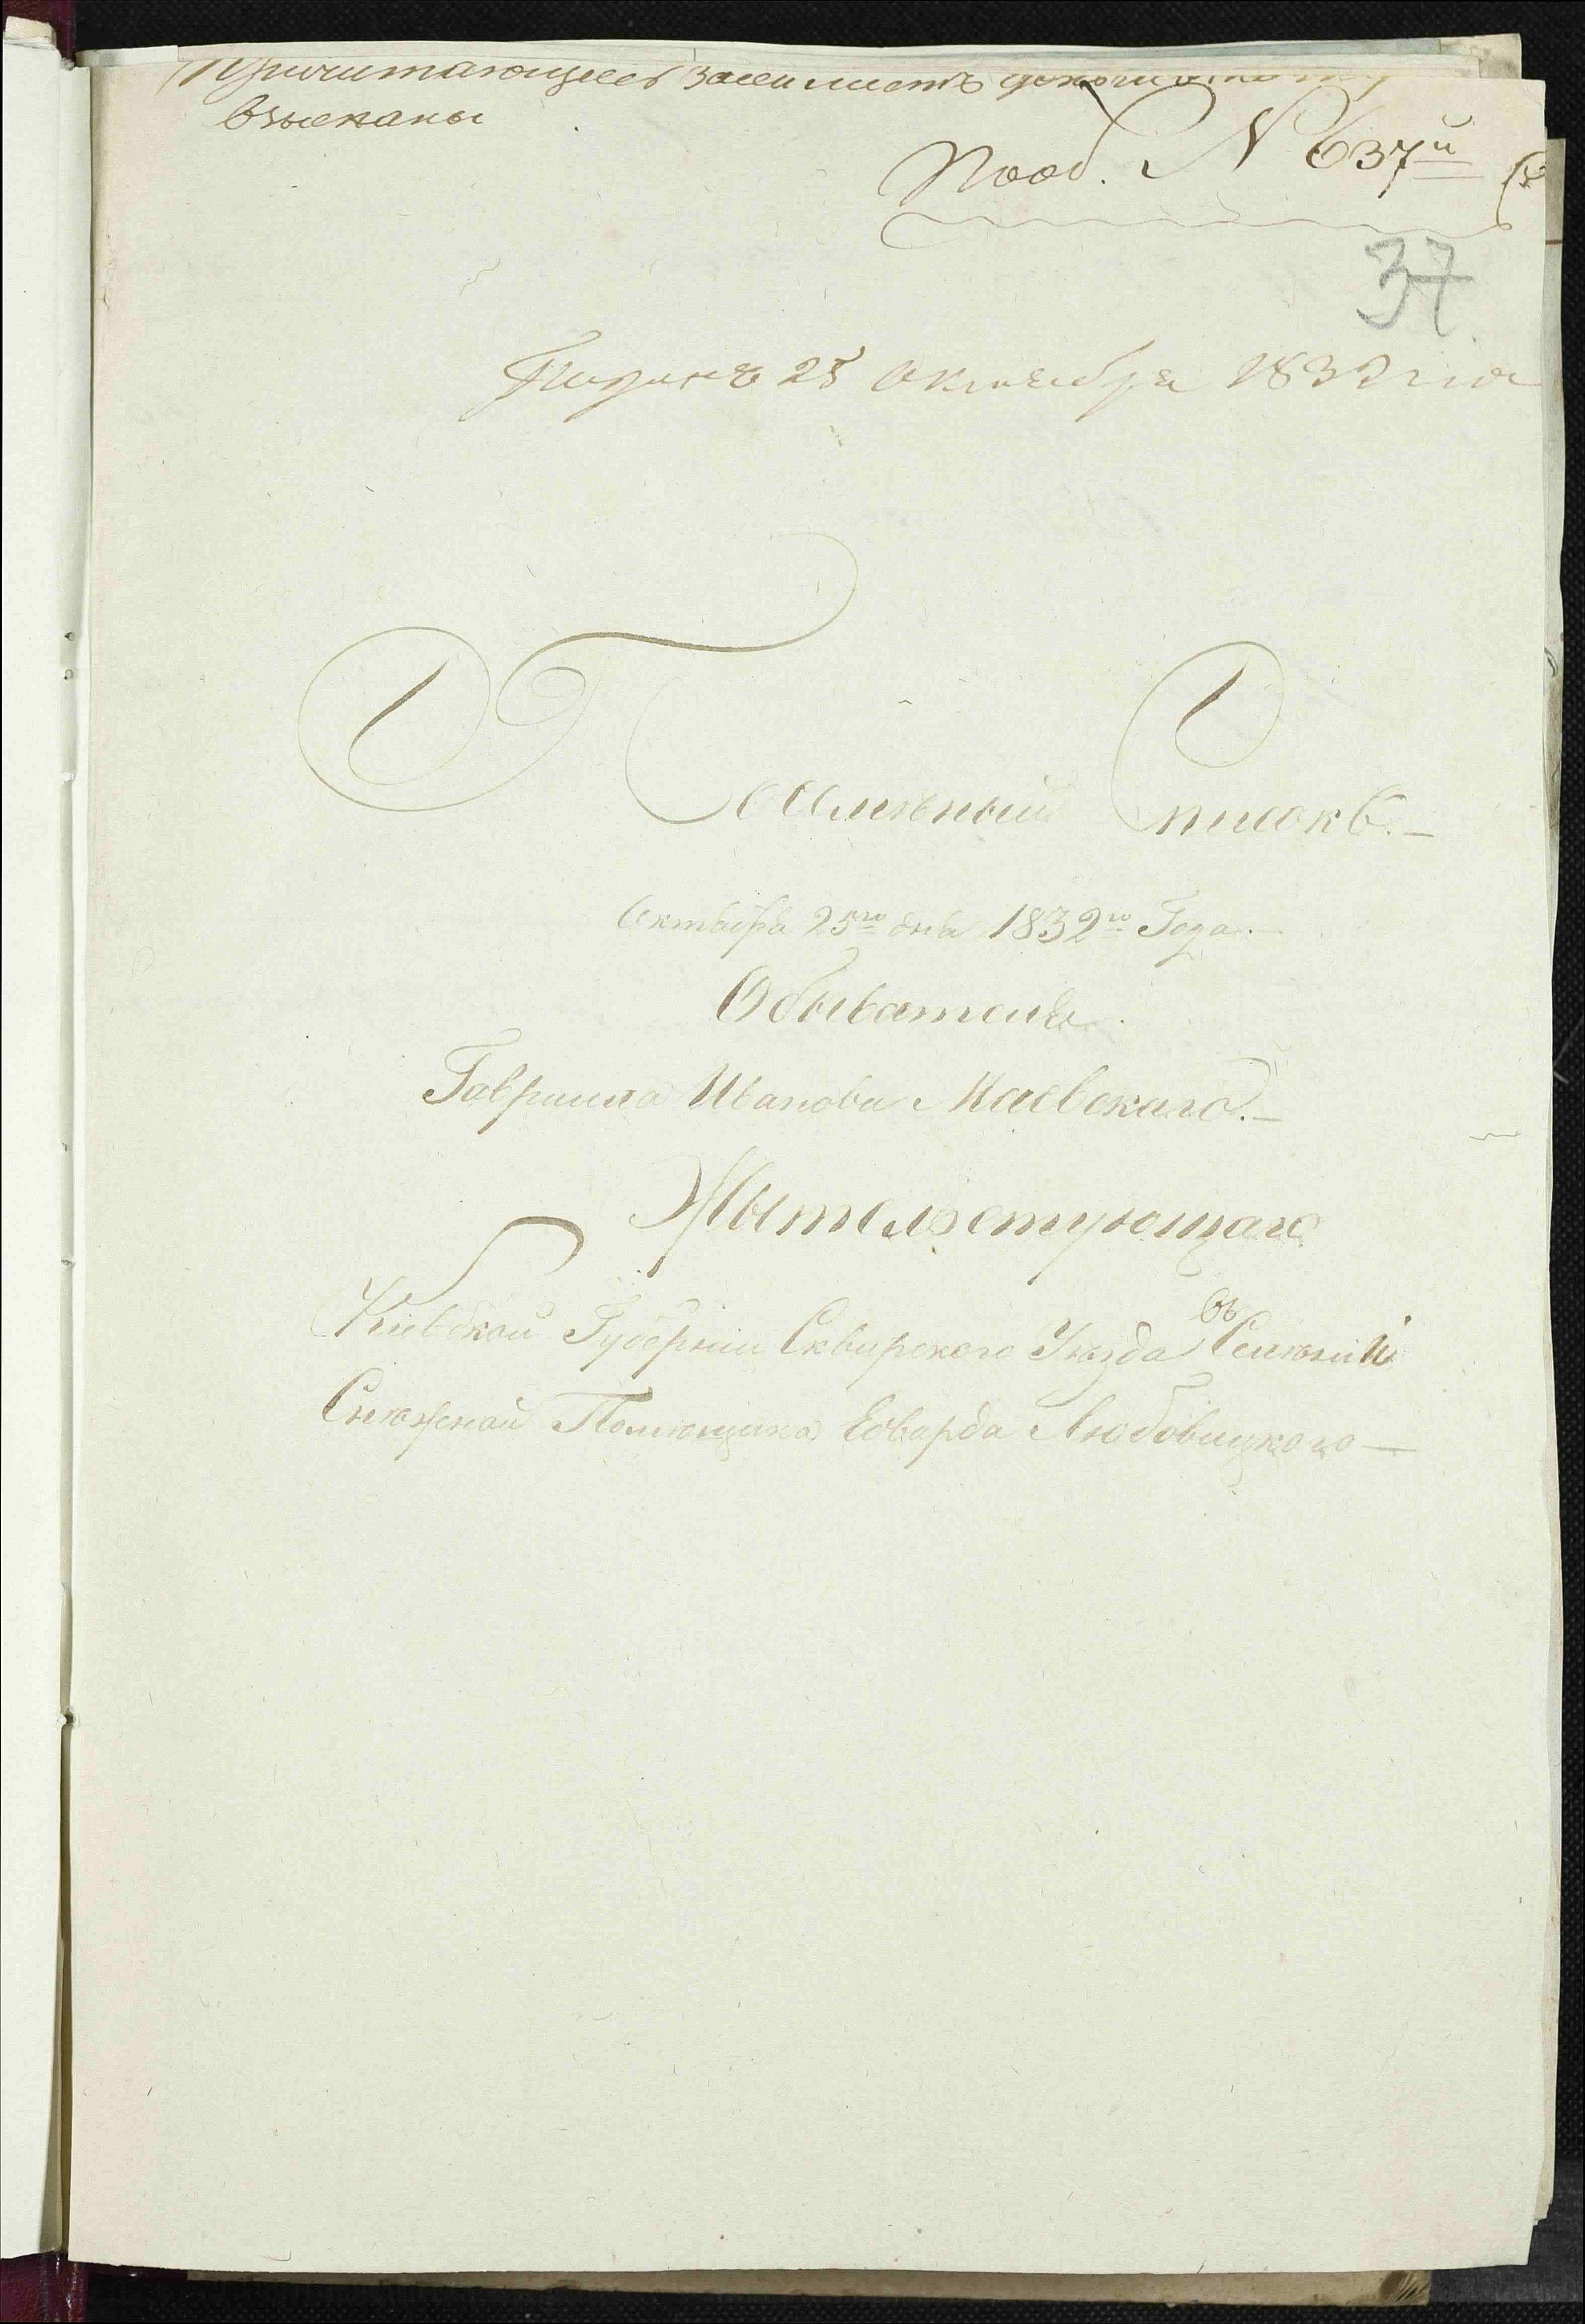 Причитающееся за сей листъ деньги
взысканы
Под. № 637й
37
25 октября 1832 го
Фамильный Списокъ.—
Октября 25го дня 1832го Года.—
Обывателя
Гавриила Иванова Маевскаго.—
Жытельствующаго
Киевской Губернии Сквирского Уезда въ Селении
Снежной Помещика Едварда Любовицкого—